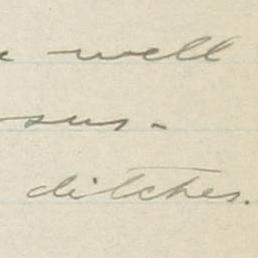 well
sus-
ditches.